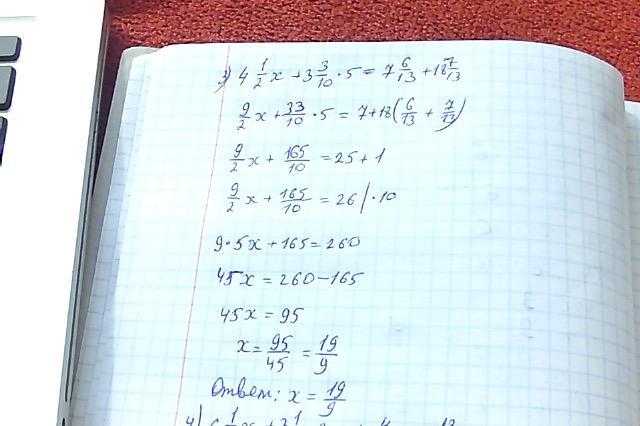 3) 4 1/2 x + 3 3/10 · 5 = 7 6/13 + 18 7/13
9/2 x + 33/10 · 5 = 7+18(6/13 + 7/13)
9/2 x + 165/10 = 25 + 1
9/2 x + 165/10 = 26 | · 10
9 · 5x + 165 = 260
45x = 260 - 165
45x = 95
x = 95/45 = 19/9
Ответ: x = 19/9
4)